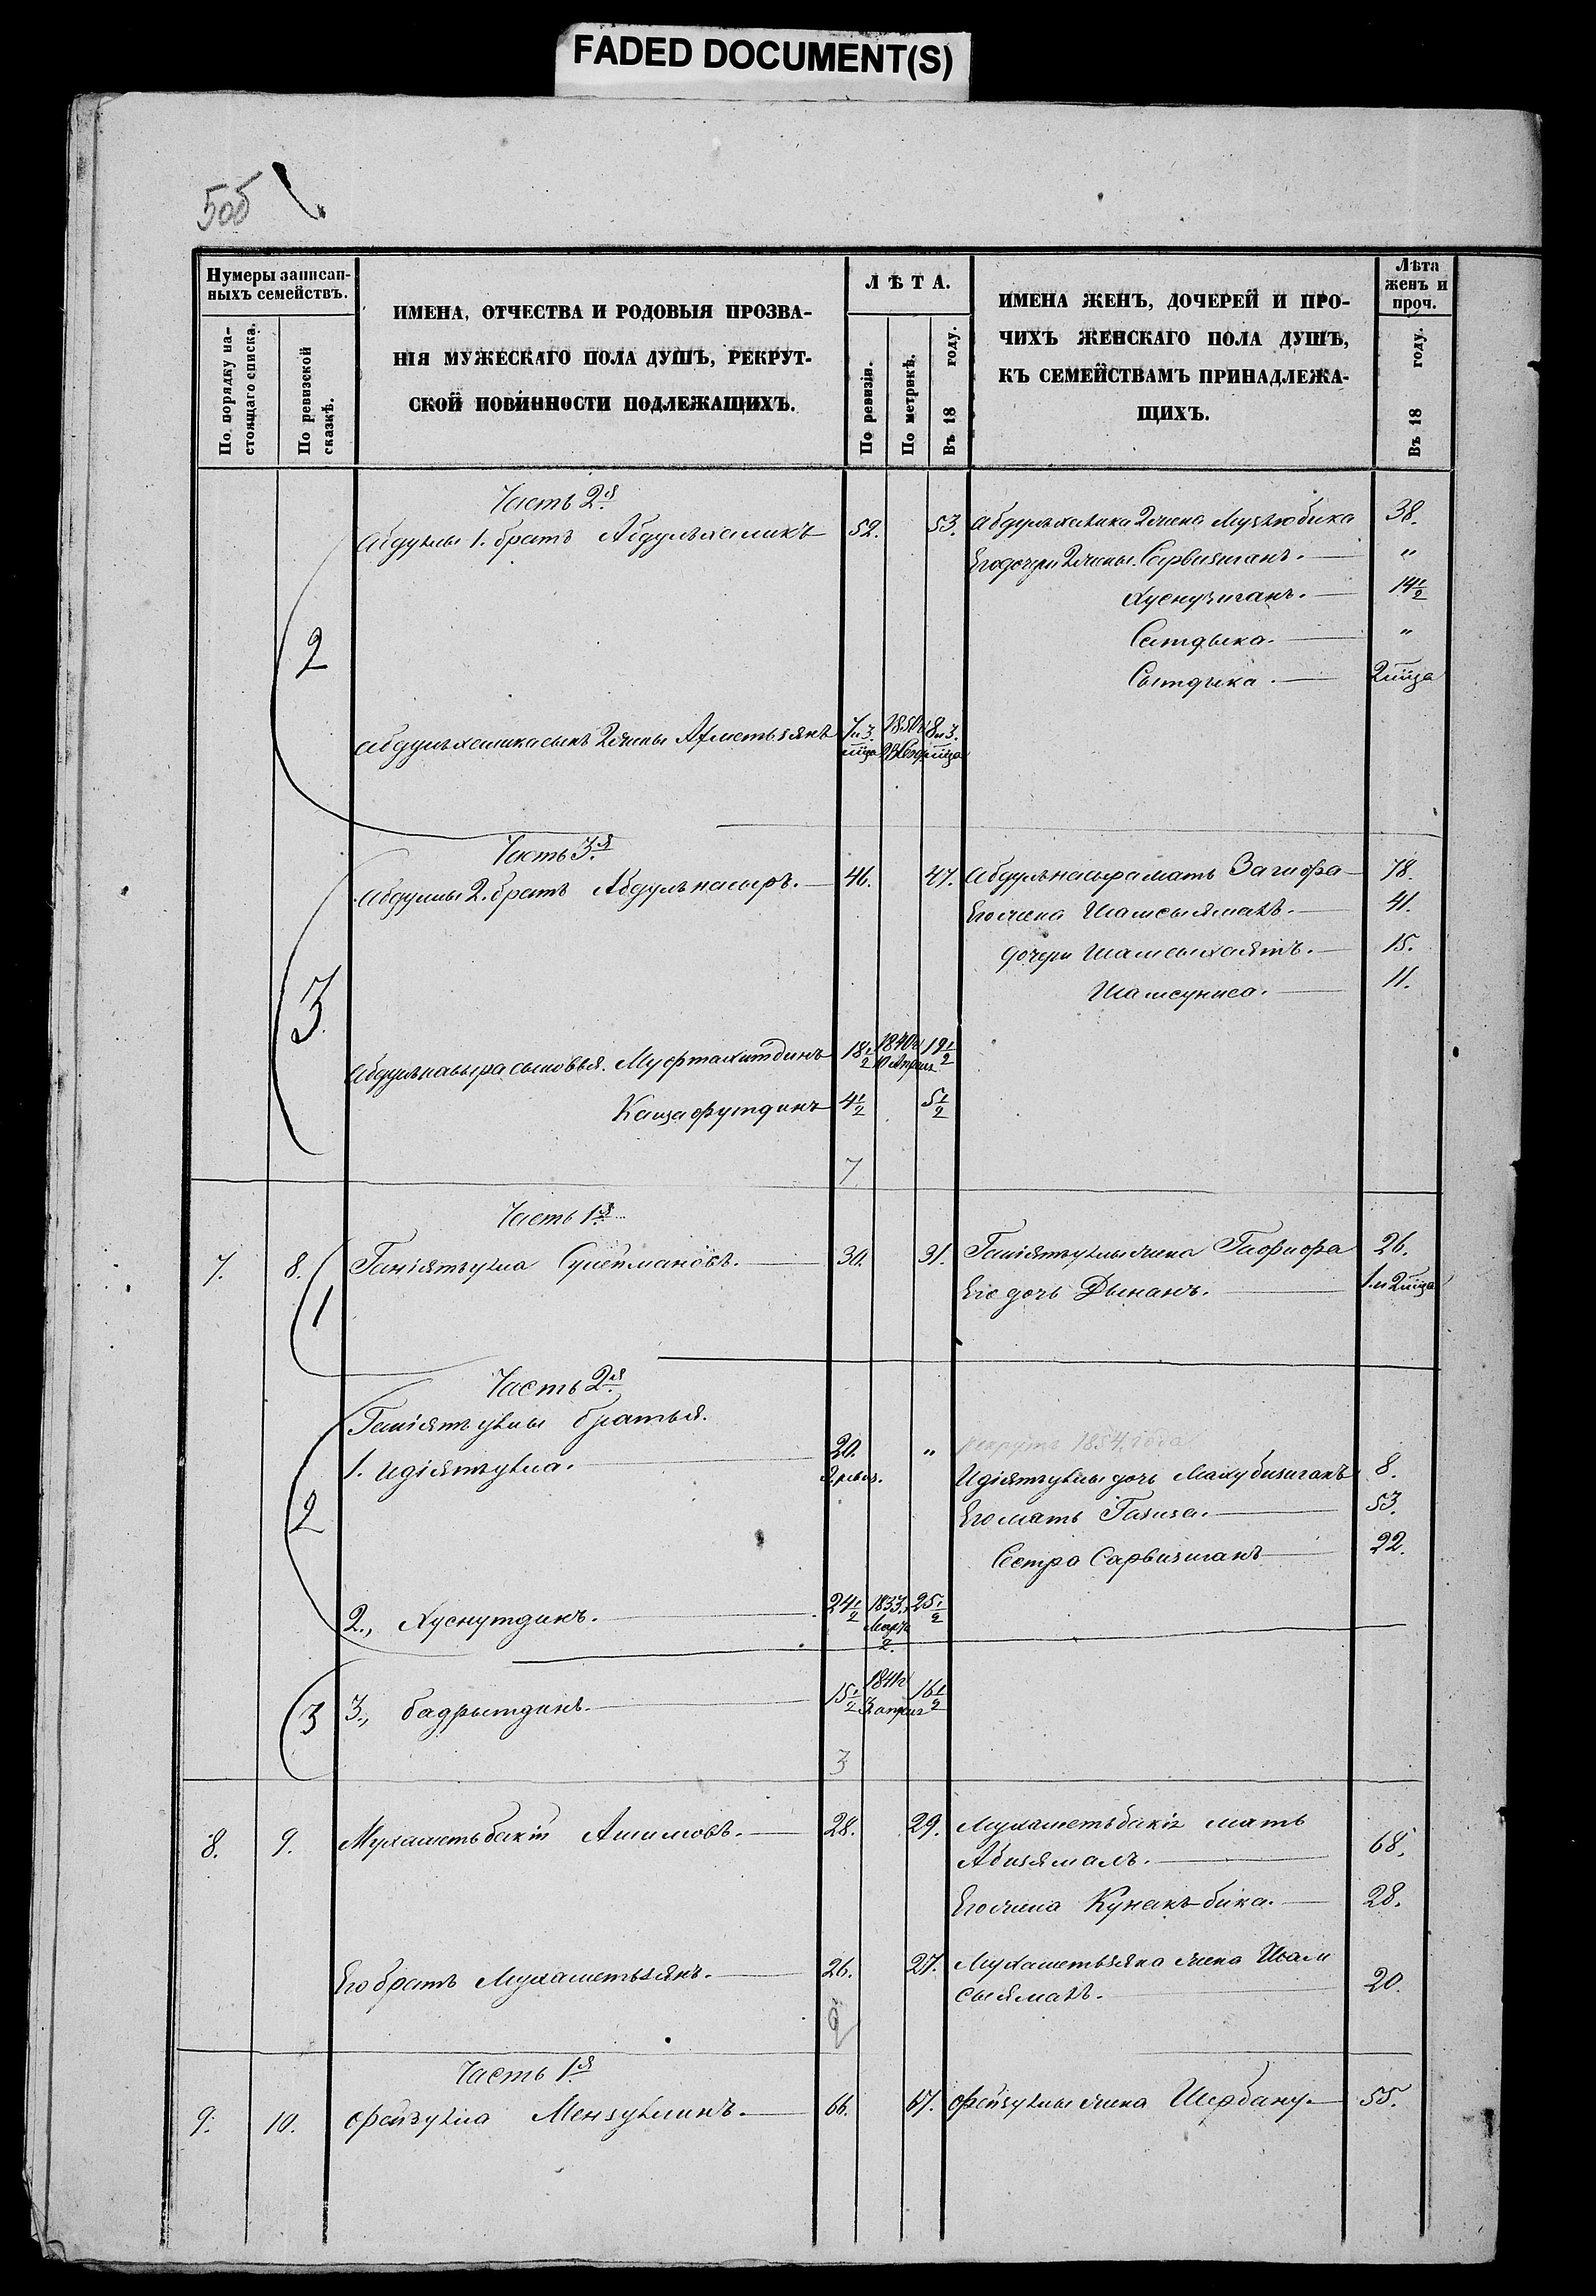 FADED DOCUMENT(S)
50б
Нумеры записан-
ныхъ семействъ.
По порядку на-
стоящаго списка.
По ревизской
сказкѣ.
ИМЕНА, ОТЧЕСТВА И РОДОВЫЯ ПРОЗВА-
НІЯ МУЖЕСКАГО ПОЛА ДУШЪ, РЕКРУТ-
СКОЙ ПОВИННОСТИ ПОДЛЕЖАЩИХЪ.
ЛѢТА.
По ревизіи.
По метрикѣ.
Въ 18 году.
ИМЕНА ЖЕНЪ, ДОЧЕРЕЙ И ПРО-
ЧИХЪ ЖЕНСКАГО ПОЛА ДУШЪ,
КЪ СЕМЕЙСТВАМЪ ПРИНАДЛЕЖА-
ЩИХЪ.
Лѣта
женъ и
проч.
Въ 18 году.
Часть 2я
Абдулы 1. братъ Абдулъхаликъ 52. 53. Абдулъхалика 2 жена 38.
Его дочери 2 жены. Сарвизиганъ. "
Хуснузиганъ. 14 1/2
Ситдыка. "
Сытдыка. 2 мца
2
Абдулъхалика сынъ 2 жены Ахметьзянъ 7 и 3. мца 1850 8 и 3. мца
Часть 3я
Абдуллы 2. братъ Абдулънасыръ. 46. 47. Абдулънасыра мать Загифа 78.
Его жена Шамсыямалъ. 41.
дочери Шамсыхаятъ. 15.
Шамсуниса. 11.
3
Абдулънасыра сыновья. Муфтахитдинъ 18 1/2 1840 10 Апрел 19 1/2
Кашафутдинъ 4 1/2 5 1/2
7
Часть 1я
7. 8. Ганіятъулла Сулеймановъ. 30. 31. Ганіятъуллы жена Гафифа 26.
Его дочь Дынанъ. 1. и 2 мца
1
Часть 2я
Ганіятъуллы братья.
1. Идіятъулла. 20. " рекрутъ 1854. года
Идіятъуллы дочь Махубизиганъ 8.
Его мать Газиза. 53.
2
Сестра Сарвизиганъ 22.
2., Хуснутдинъ. 24 1/2 1833. Март 2. 25 1/2
3 3., Бадрытдинъ. 15 1/2 1841 3 апрел 16 1/2
3
8. 9. Мухаметьбакій Ашимовъ. 28. 29. Мухаметьбакія мать
Абизямалъ. 68.
Его жена Кунакъбика. 28.
Его братъ Мухаметьзянъ. 26. 27. Мухаметьзяна жена Шам
сыямалъ. 20.
2
Часть 1я
9. 10. Фейзулла Мензулинъ. 66. 67. Фейзуллы жена Шербану. 55.